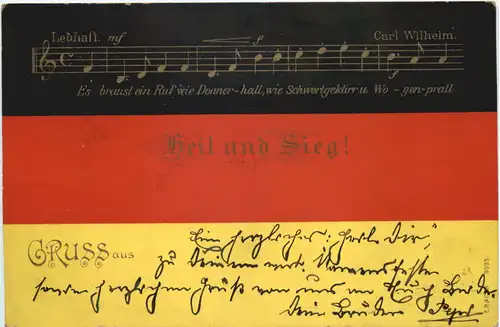 Lebhaft. mf f Carl Wilhelm.
f
Es braust ein Ruf wie Donner-hall, wie Schwertgeklirr u. Wo-gen-prall
Heil und Sieg!
GRUSS aus
Ein herzliches: Heil Dir,"
zu Deinem werten Namensfeste
herzlichen Gruß von uns an Euch
Dein Bruder